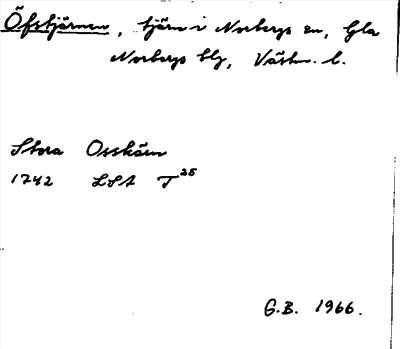 Öfstjärnen, tjärn i Norbergs sn, Gla
Norbergs blg, Västm. l.
Stora Osskärn
1742 LSA T 25
G.B. 1966.